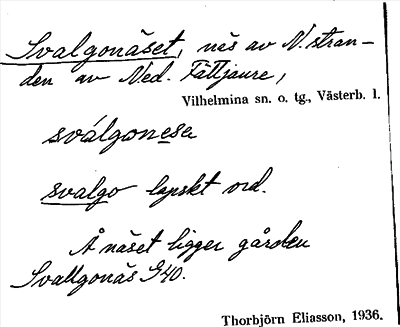 Svalgonäset, näs av N. stran-
den av Ned. Fättjaure,
Vilhelmina sn. o. tg., Västerb. l.
svålgonesa
svalgo lapskt ord.
Å näset ligger gården
Svallgonäs G40.
Thorbjörn Eliasson, 1936.